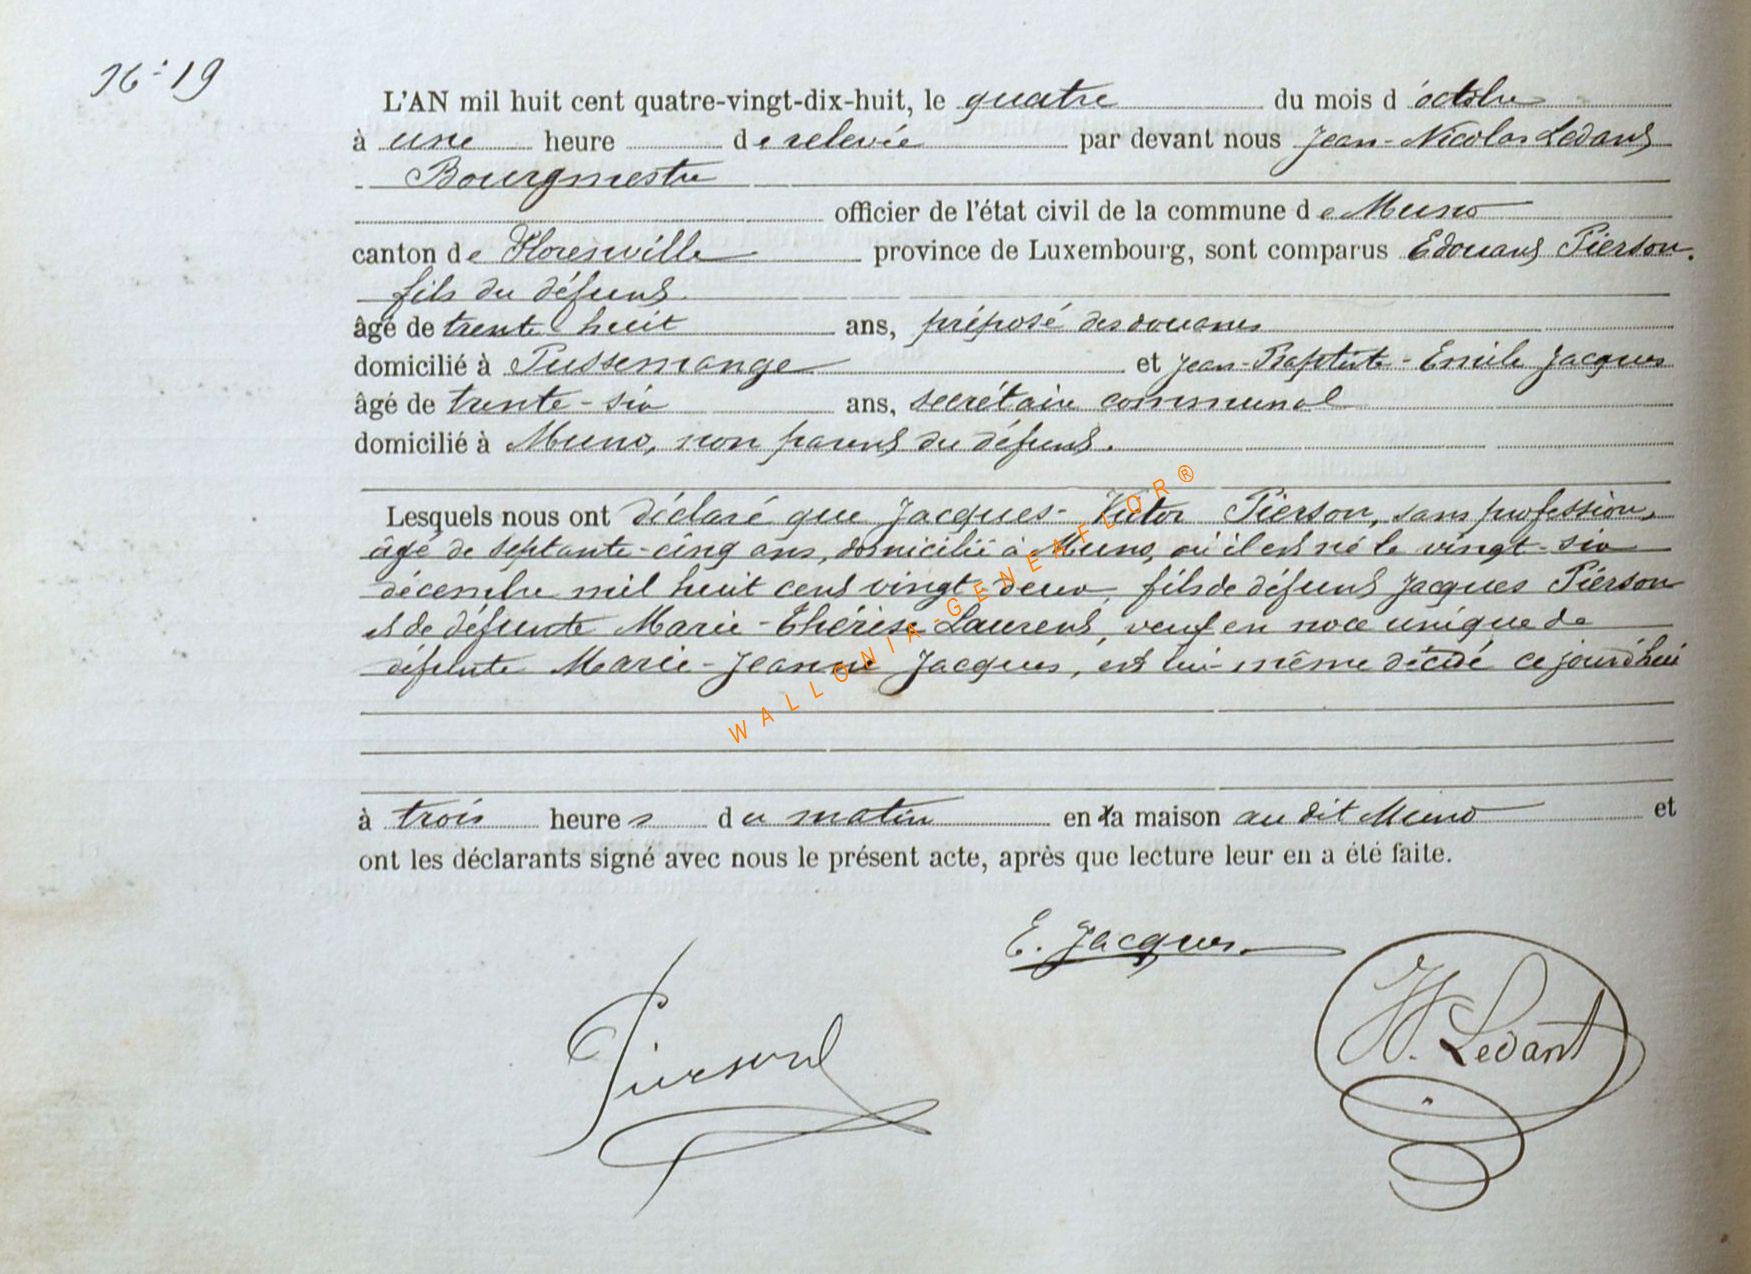 Nº 19
L'AN mil huit cent quatre-vingt-dix-huit, le quatre du mois d'octobre
à une heure de relevée par devant nous Jean-Nicolas Ledant
Bourgmestre
officier de l'état civil de la commune de Muno
canton de Florenville province de Luxembourg, sont comparus Edouard Pierson.
fils du défunt.
âgé de trente huit ans, préposé des douanes
domicilié à Pussemange et Jean-Baptiste-Emile Jacques
âgé de trente-six ans, secrétaire communal
domicilié à Muno, non parent du défunt.
Lesquels nous ont déclaré que Jacques-Victor Pierson, sans profession,
âgé de septante-cinq ans, domicilié à Muno, où il est né le vingt-six
décembre mil huit cent vingt deux, fils de défunt Jacques Pierson
et de défunte Marie-Thérèse Laurent, veuf en noce unique de
défunte Marie-Jeanne Jacques, est lui-même décédé ce jourd'hui
WALLONIA-GENEAFLOR®
à trois heures du matin en la maison au dit Muno et
ont les déclarants signé avec nous le présent acte, après que lecture leur en a été faite.
E. Jacques
Pierson
N. Ledant